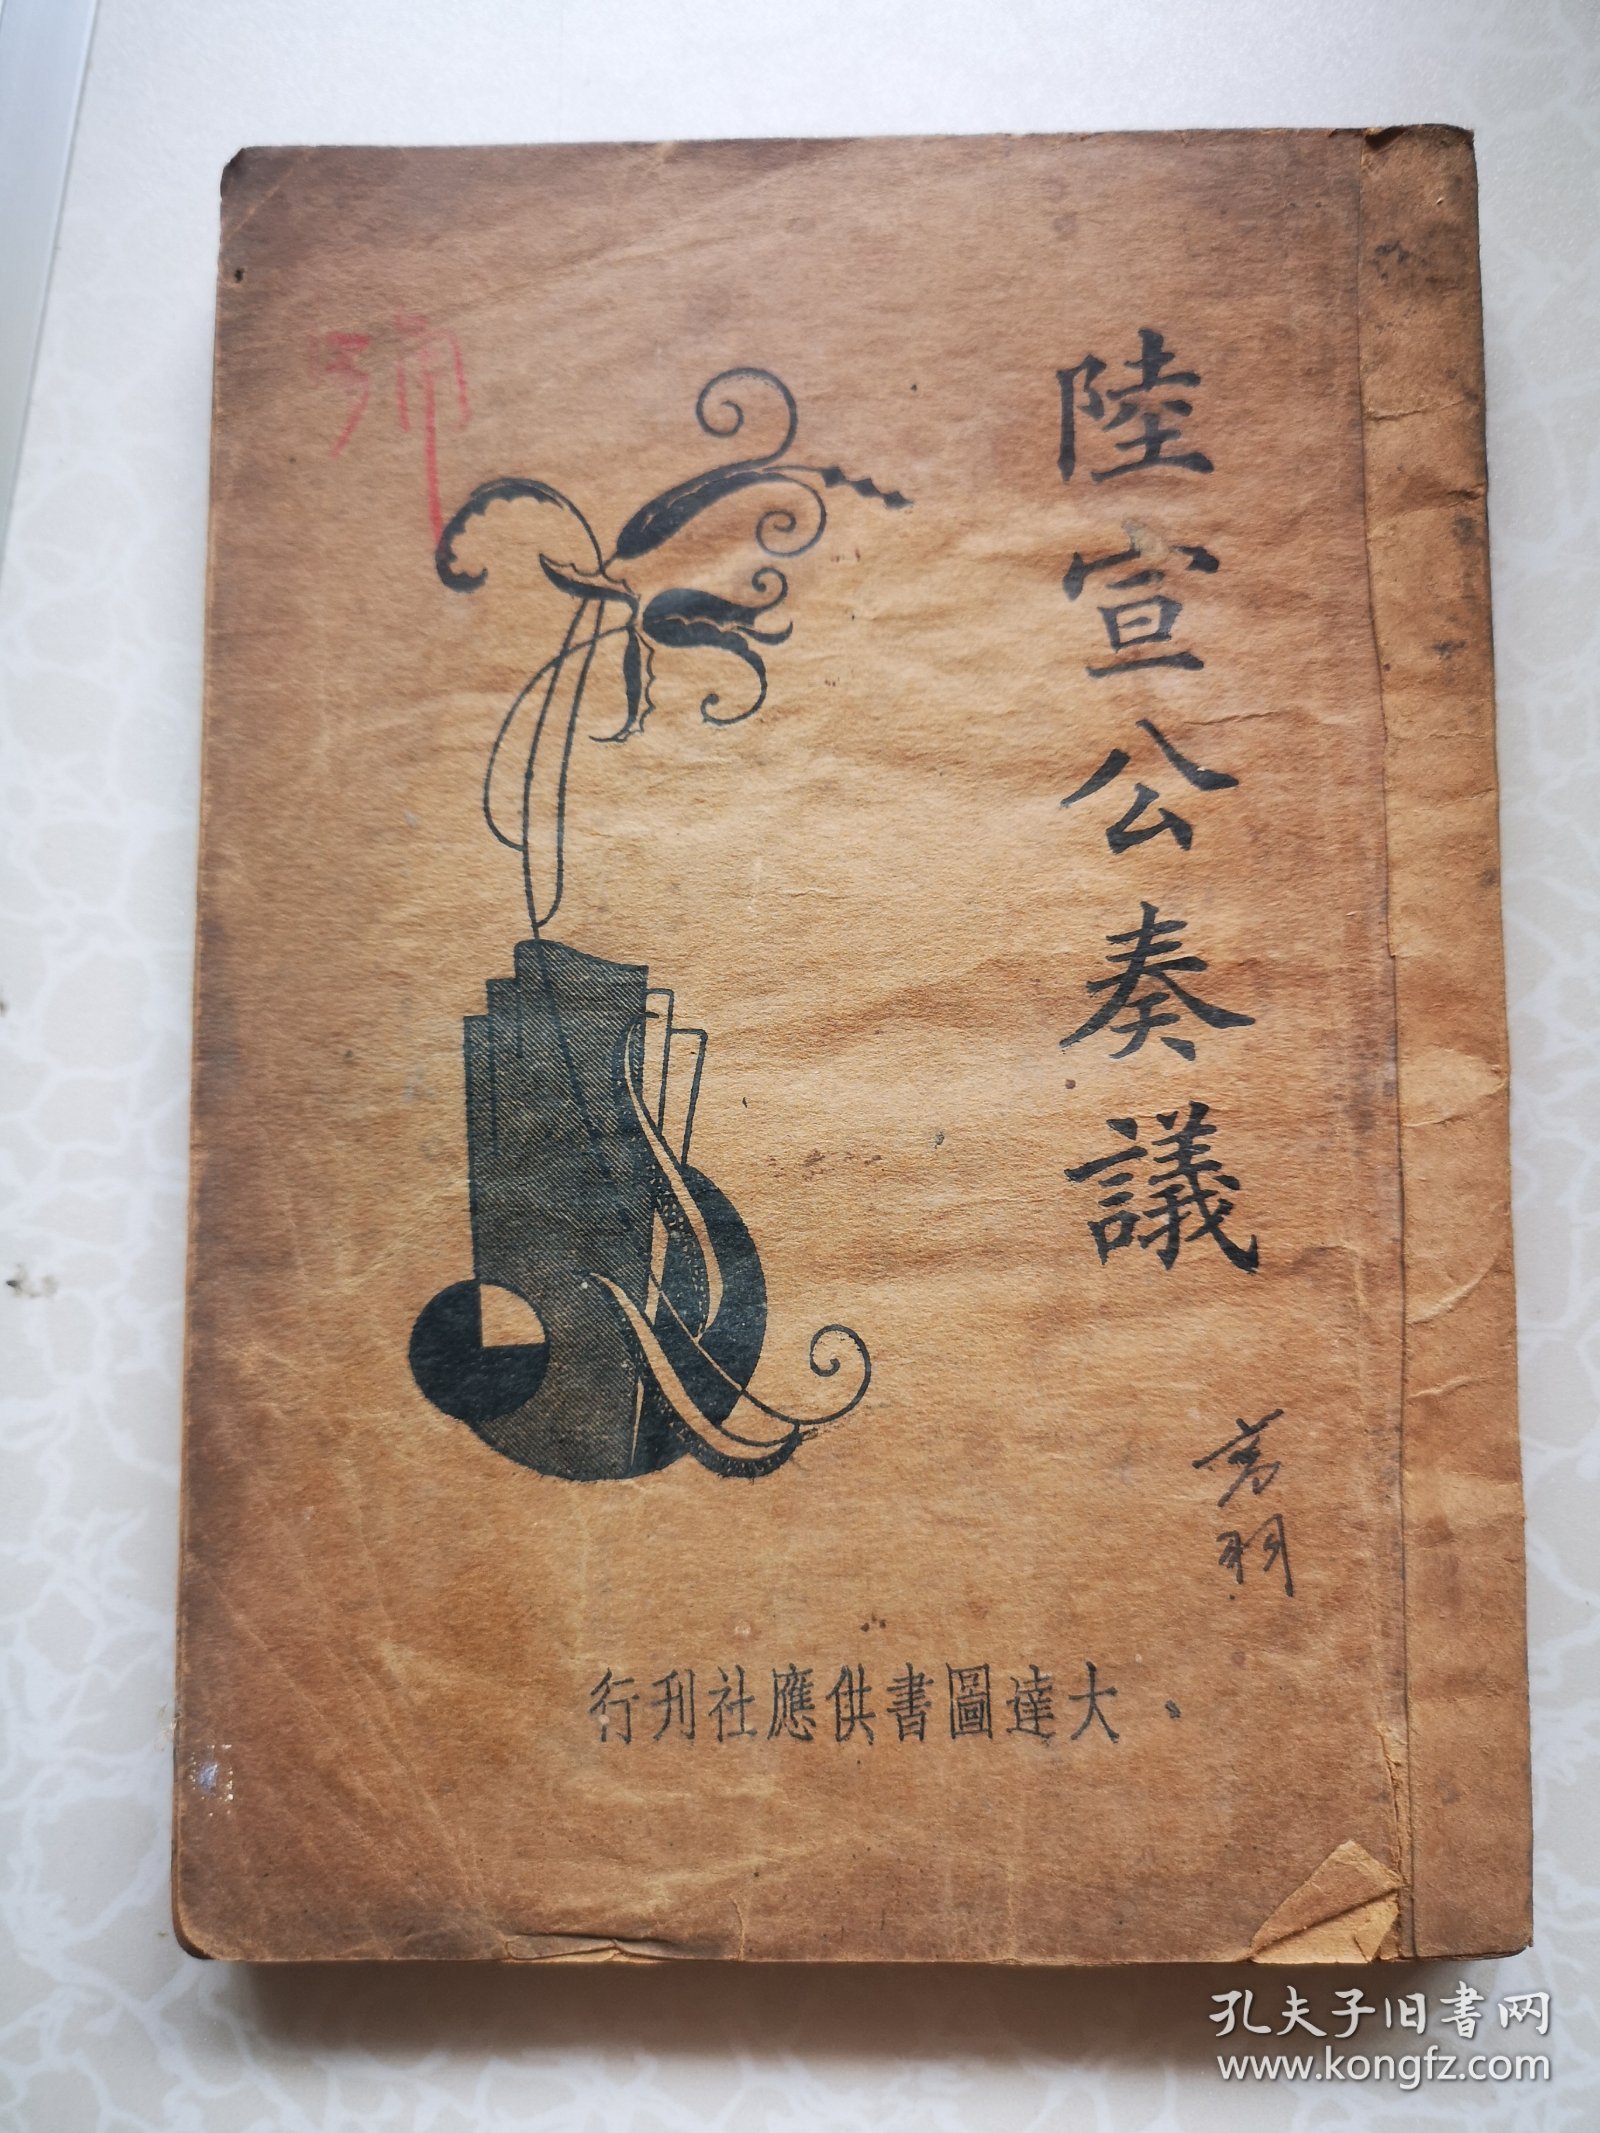 陸宣公奏議
大達圖書供應社刊行
孔夫子旧书网
www.kongfz.com